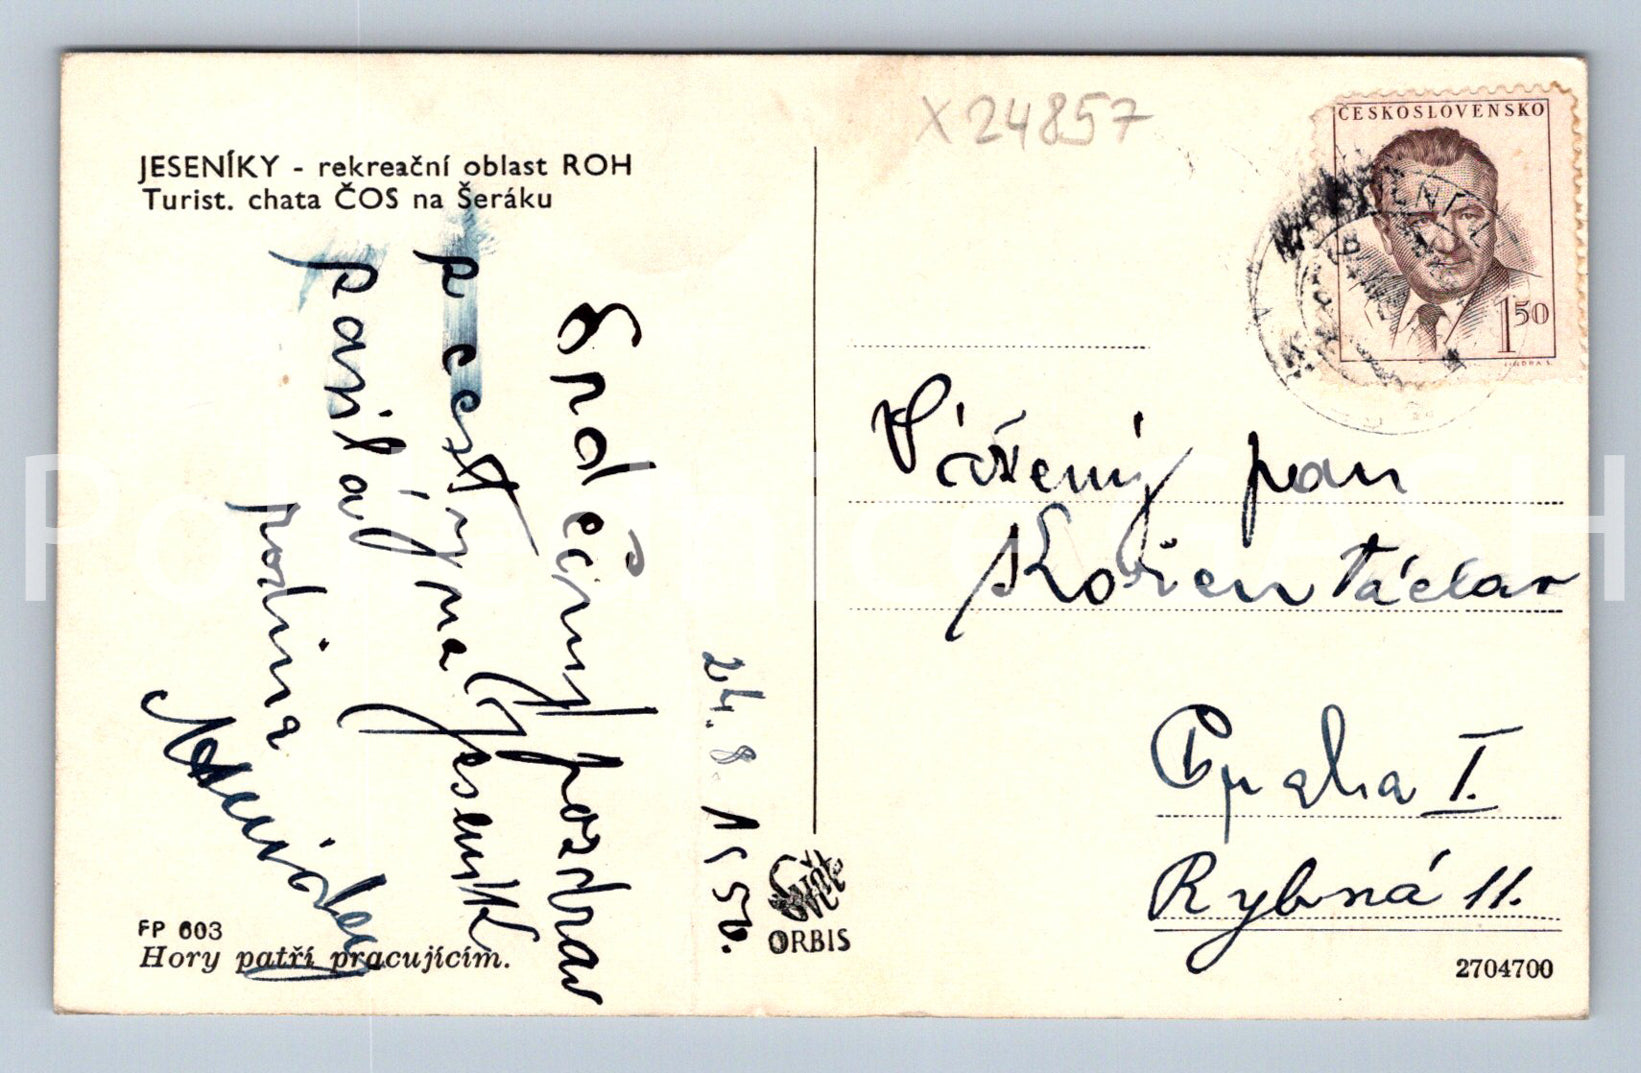 X 24857
ČESKOSLOVENSKO
1 50
JESENÍKY - rekreační oblast ROH
Turist. chata ČOS na Šeráku
Srdečný pozdrav
z cesty na Jeseník
posílá
rodina
24. 8. 1950.
Vážený pan
Kořen Václav
Praha I.
Rybná 11.
FP 603
Hory patří pracujícím.
ORBIS
2704700